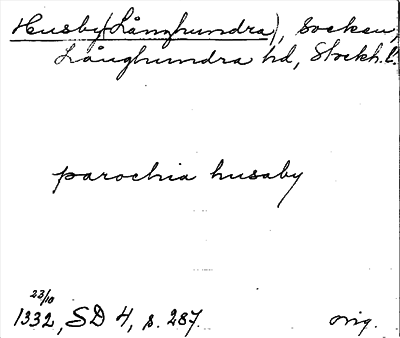 Husby (Långhundra), socken,
Långhundra hd, Stockh. l.
parochia husaby
23/10
1332, SD 4, s. 287.
orig.